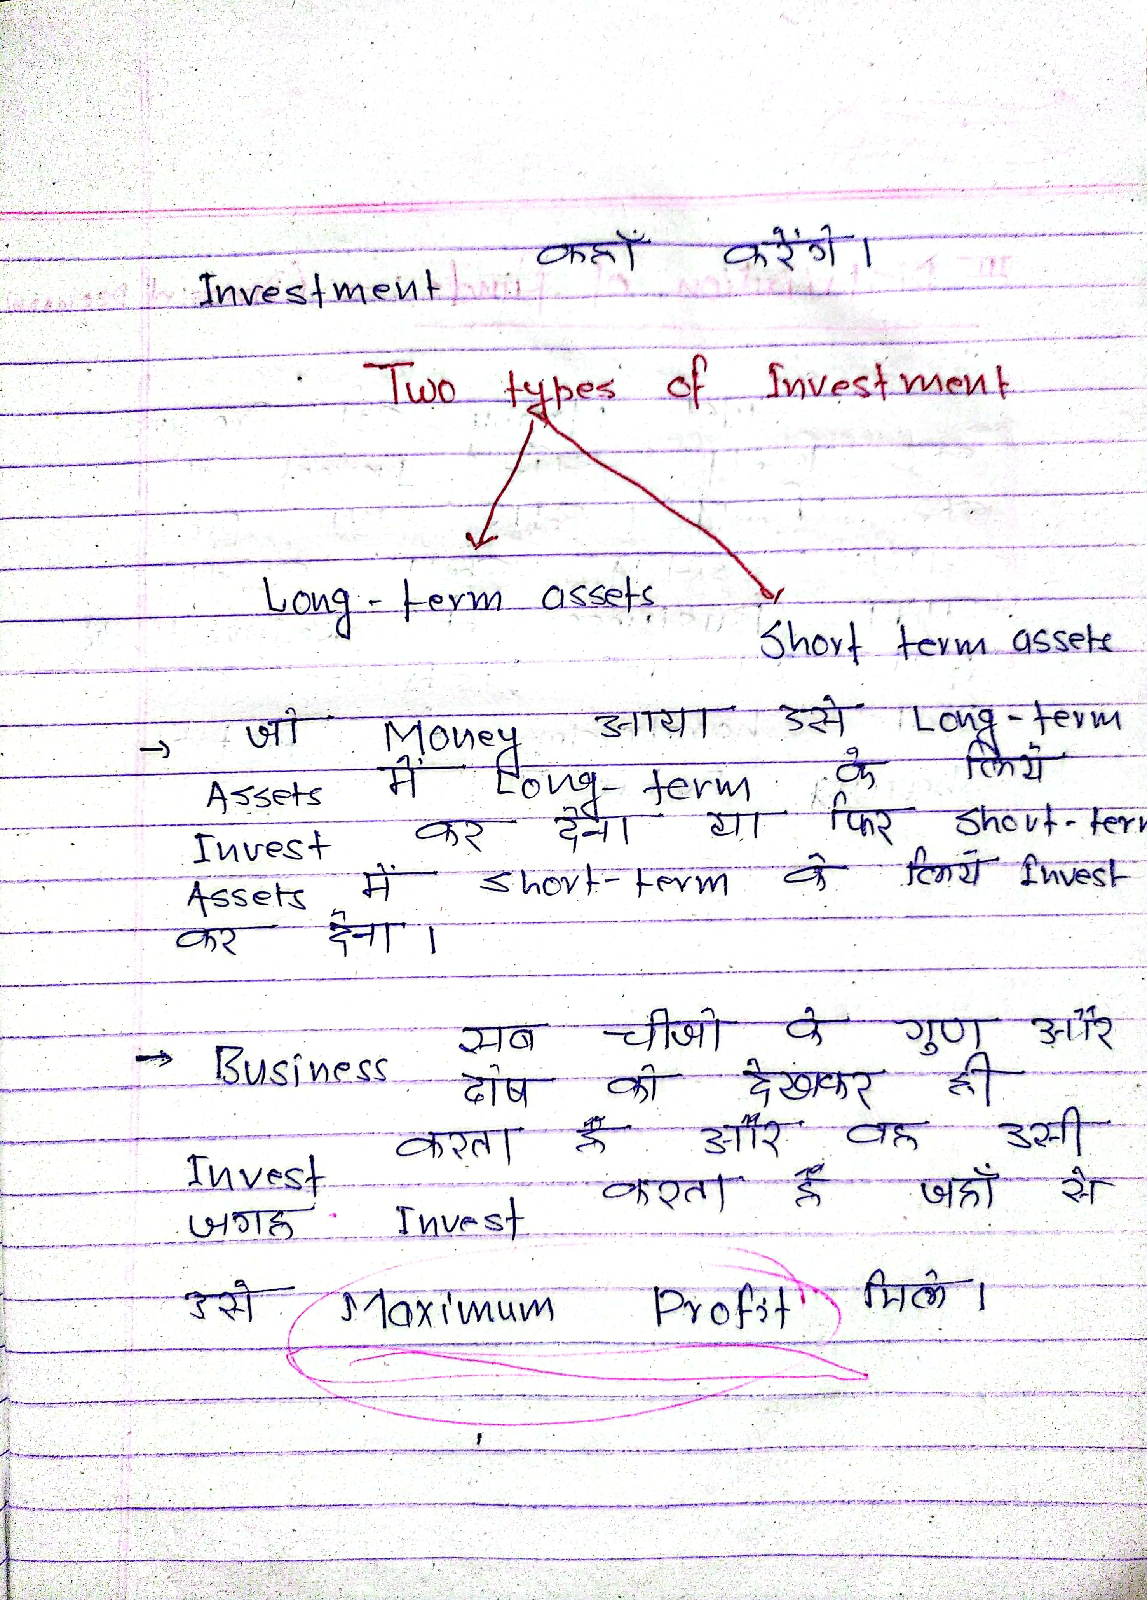 Investment कहाँ करेंगे।
Two types of Investment
Long-term assets
Short term assets
→ जो Money आया उसे Long-term
Assets में Long-term के लिये
Invest कर देना या फिर short-term
Assets में short-term के लिये Invest
कर देना।
→ Business सब चीजो के गुण और
दोष को देखकर ही
Invest करता है और वह उसी
जगह Invest करता है जहाँ से
उसे Maximum Profit मिले।